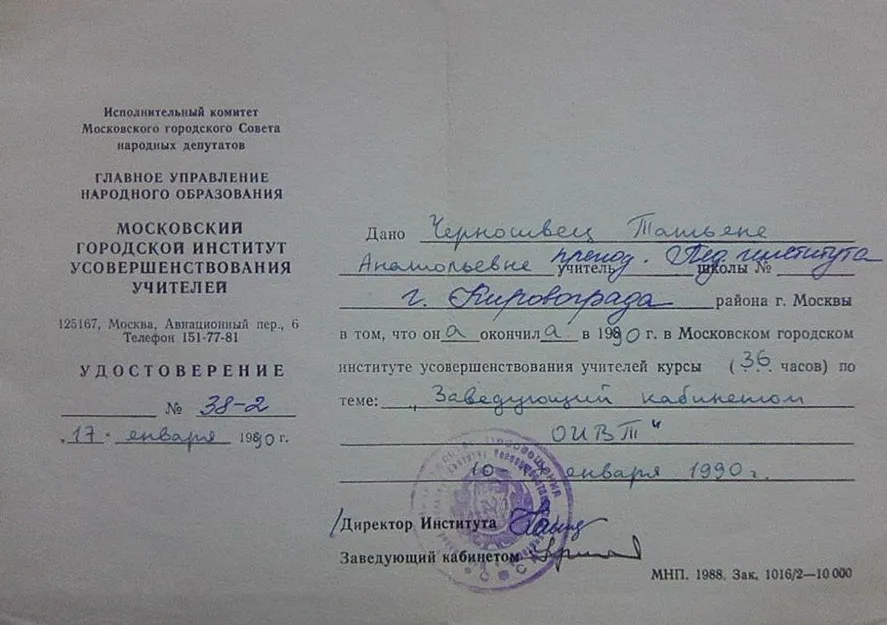 Исполнительный комитет
Московского городского Совета
народных депутатов
ГЛАВНОЕ УПРАВЛЕНИЕ
НАРОДНОГО ОБРАЗОВАНИЯ
МОСКОВСКИЙ
ГОРОДСКОЙ ИНСТИТУТ
УСОВЕРШЕНСТВОВАНИЯ
УЧИТЕЛЕЙ
125167, Москва, Авиационный пер., 6
Телефон 151-77-81
УДОСТОВЕРЕНИЕ
№ 38-2
„17" января 1990 г.
Дано Черношвец Татьяне
Анатольевне учитель препод. Пед. института школы №
г. Кировограда района г. Москвы
в том, что она окончила в 1990 г. в Московском городском
институте усовершенствования учителей курсы (36 часов) по
теме: „Заведующий кабинетом
ОИВТ"
января 1990 г.
Директор Института
Заведующий кабинетом
МНП. 1988. Зак. 1016/2—10 000